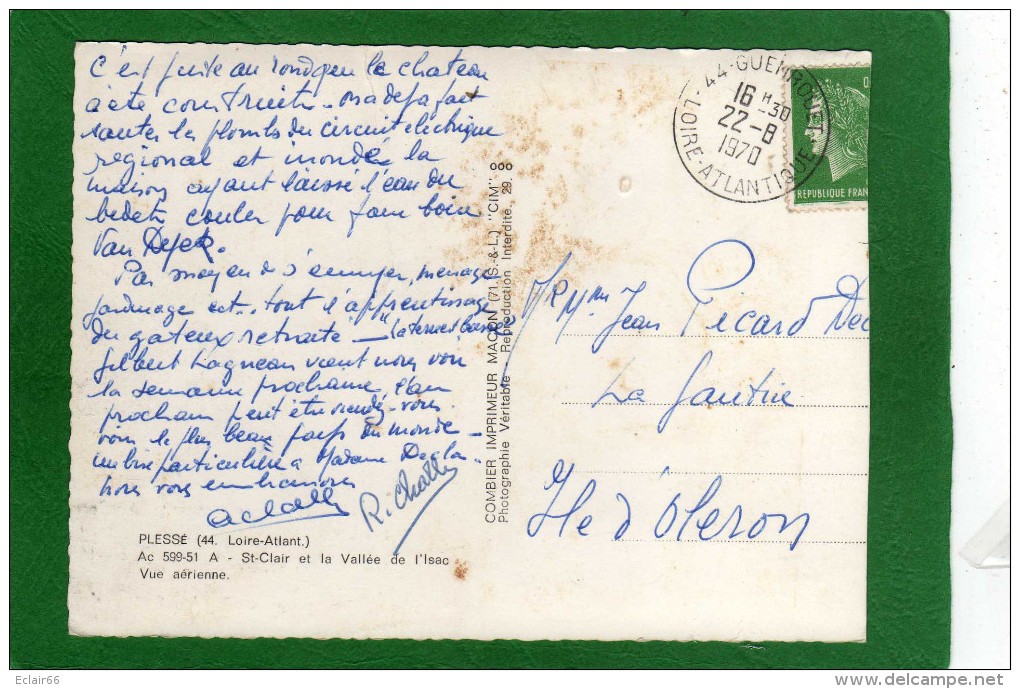 C'est juste au rond
le chateau
a été construit - on a deja fait
sauter les plombs du circuit electrique
regional et inondé la
maison ayant laissé l'eau du
bidet couler pour faire boire
Van Dyck.
Pas moyen de s'ennuyer, menage
jardinage est .. tout l'apprentissage
du gateux retraité -
Gilbert Lagneau vient nous voir
la semaine prochaine, l'an
prochain peut être rendez-vous
vous le plus beau pays du monde -
une bise particulière a Madame
nous vous embrassons
R. Challe
PLESSÉ (44. Loire-Atlant.)
Ac 599-51 A - St-Clair et la Vallée de l'Isac
Vue aérienne.
COMBIER IMPRIMEUR MACON (71 (S.-&-L.) "CIM"
Photographie Véritable - Reproduction Interdite. 29.
44-GUENROUET
16 H 30
22-8
1970
LOIRE-ATLANTIQUE
REPUBLIQUE FRAN
Mr Mme Jean Picard
La Gautrie
Ile d'Oleron
Eclair66